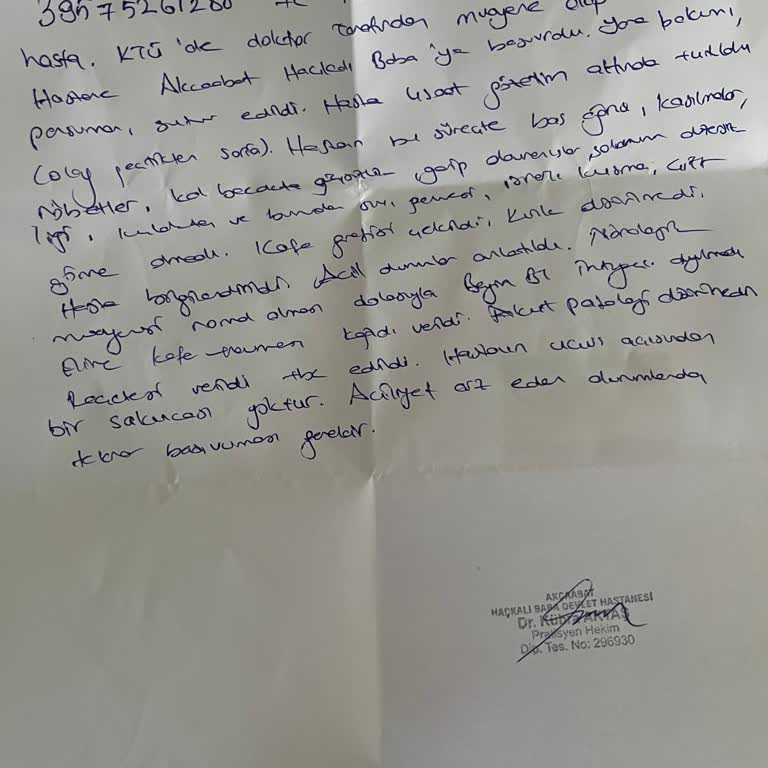 39575261280 tc
hasta. KTÜ'de doktor tarafından muayene olup
Hastane Akcaabat Hackalı Baba'ya başvurdu. yara bakımı,
pansuman, sutur edildi. Hasta 4 saat gözetim altında tutuldu
(olay geçtikten sonra). Hastan bu süreçte baş ağrısı, kasılmalar,
nöbetler, kol bacakta güçsüzlük garip davranışlar, solunum düzensiz
liği, kulaktan ve burunda sıvı gelmesi, ısrarlı kusma, çift
görme olmadı. Kafa grafisi çekildi, kırık düşünülmedi.
Hasta bilgilendirildi. Acil durumlar anlatıldı. Nörolojik
muayenesi normal olması dolasıyla Beyin BT ihtiyacı duyulmadı
Eline kafa travması kağıdı verildi. Akut patoloji düşünülmedi
Reçetesi verildi edildi. Hastanın uçuş açısından
bir sakıncası yoktur. Aciliyet arz eden durumlarda
tekrar başvurması gerekir.
AKÇAABAT
HAÇKALI BABA DEVLET HASTANESİ
Dr. Kübra AKTAŞ
Pratisyen Hekim
Dip. Tes. No: 296930